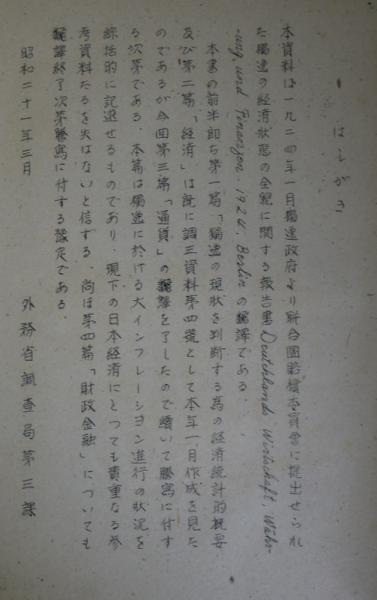 はしがき
本資料は一九二四年一月獨逸政府より聯合國賠償委員會に提出せられ
た獨逸の経済狀態の全貌に関する報告書 Deutchlands Wirtschaft, Wäh-
rung, und Finanzen. 1924. Berlin の飜譯である。
本書の前半卽ち第一篇「獨逸の現狀を判断する爲の経済統計的概要
及び第二篇「経済」は旣に調三資料第四號として本年一月作成を見た
のであるが今回第三篇「通貨」の飜譯を了したので續いて謄寫に付す
る次第である。本篇は獨逸に於ける大インフレーション進行の狀況を
綜括的に記述せるものであり、現下の日本経済にとつても貴重なる参
考資料たるを失はないと信ずる。尚ほ第四篇「財政金融」についても
飜譯終了次第謄寫に付する豫定である。
昭和二十一年三月
外務省調査局第三課